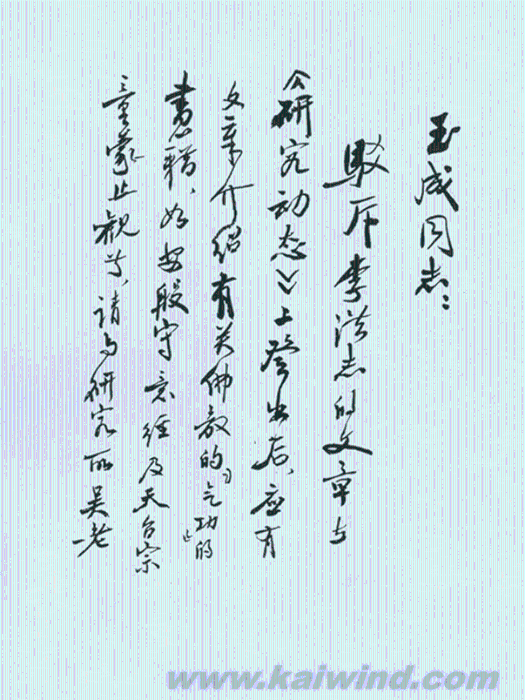 玉成同志：
驳斥李洪志的文章在
《研究动态》上登出后，应有
文章介绍有关佛教的“气功”的
书籍，如安般守意经及天台宗
童蒙止观等，请与研究所吴老
www.kaiwind.com